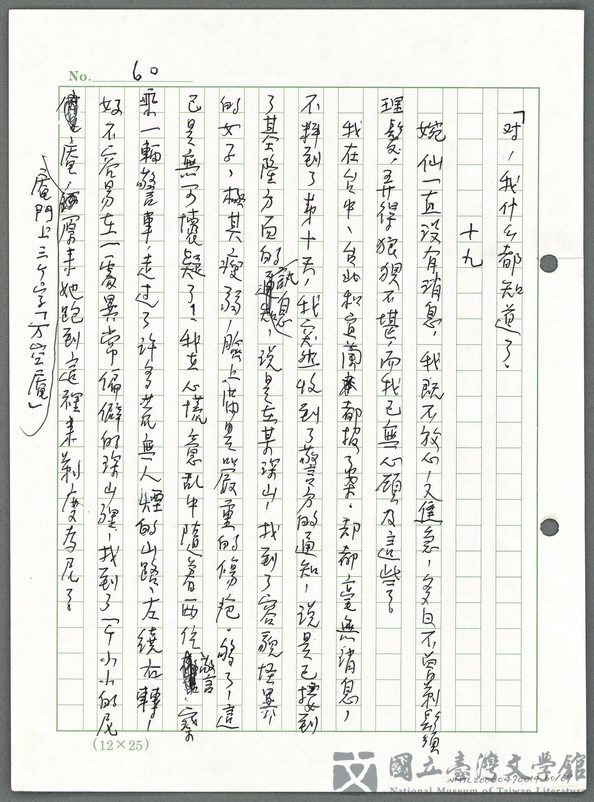 No. 60
「对，我什么都知道了。
十九
婉仙一直没有消息，我既不放心，又焦急，多日不曾剃鬍鬚
理髮，弄得狼狽不堪，而我已無心顧及這些了。
我在台中、台北和宜蘭都报了案，却都毫無消息，
不料到了第十天，我突然收到了警方的通知，說是已接到
了基隆方面的訊息，說是在某深山，找到了容貌怪異
的女子，極其瘦弱，臉上滿是嚴重的傷疤。够了，這
已是無可懷疑了，我在心慌意乱中隨着两位警察
乘一輛警車，走过了許多荒無人煙的山路，左繞右轉，
好不容易在一處異常偏僻的深山裡，找到了一个小小的尼
庵，庵門上三个字「万空庵」
原来她跑到這裡来剃度為尼了。
(12×25)
國立臺灣文學館
National Museum of Taiwan Literature